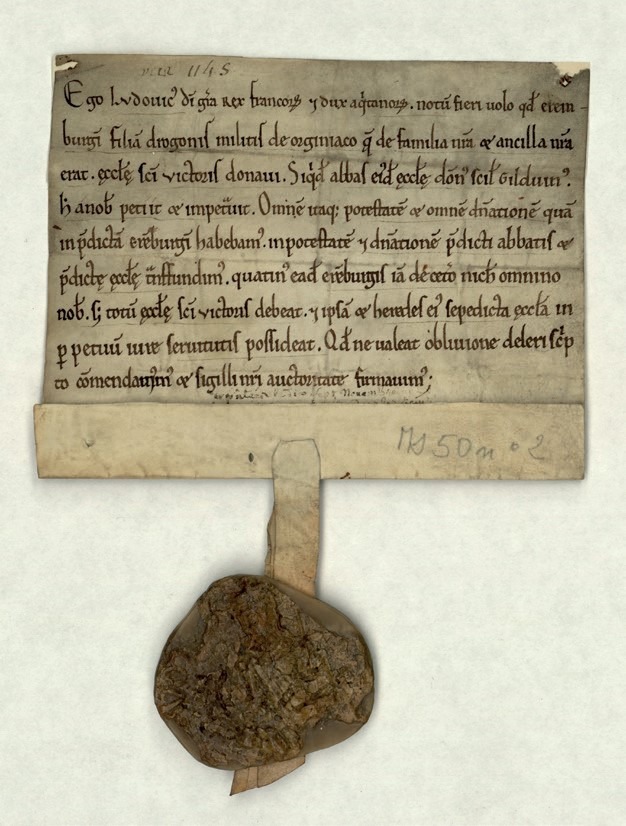 vers 1145
Ego Lvdouicꝰ dī gr̄a rex francoꝝ ⁊ dux aq̇tanoꝝ. notū fieri uolo qđ erem-
burgī filiā drogonis militis de orginiaco q̄ de familia nr̄a & ancilla nr̄a
erat. ęccłę sc̄i victoris donaui. Siq̇đ abbas eiđ ęccłę dōn scił Gilduinꝰ.
h̄ a nob petiit & impet̄uit. Omnē itaq; potestatē & omnē dn̄ationē quā
in p̄dictā erēburgī habebamꝰ. in potestatē ⁊ dn̄ationē p̄dicti abbatis &
p̄dictę ęccłę tn̄sfundimꝰ. quatinꝰ eađ erēburgis iā de cet̄o nich omnino
nob. s; totū ęccłę sc̄i victoris debeat. ⁊ ipsā & heredes eiꝰ sepedicta ęccła in
ꝑpetuū iure seruitutis possideat. Qđ ne ualeat obliuione deleri sc̄p
to cōmendauimꝰ & sigilli nr̄i auctoritate firmauimꝰ;
MS 50 n° 2